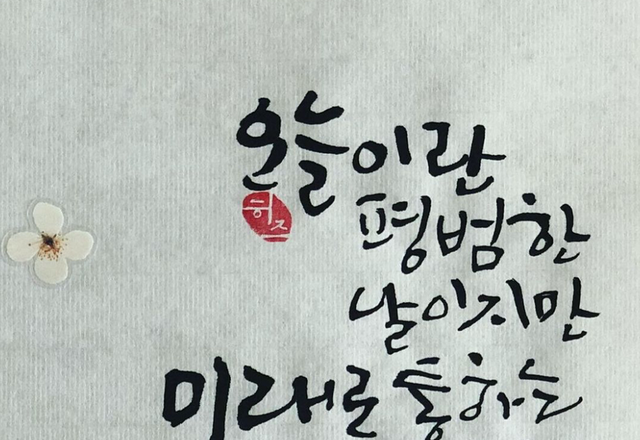 오늘이란
평범한
날이지만
미래로 통하는